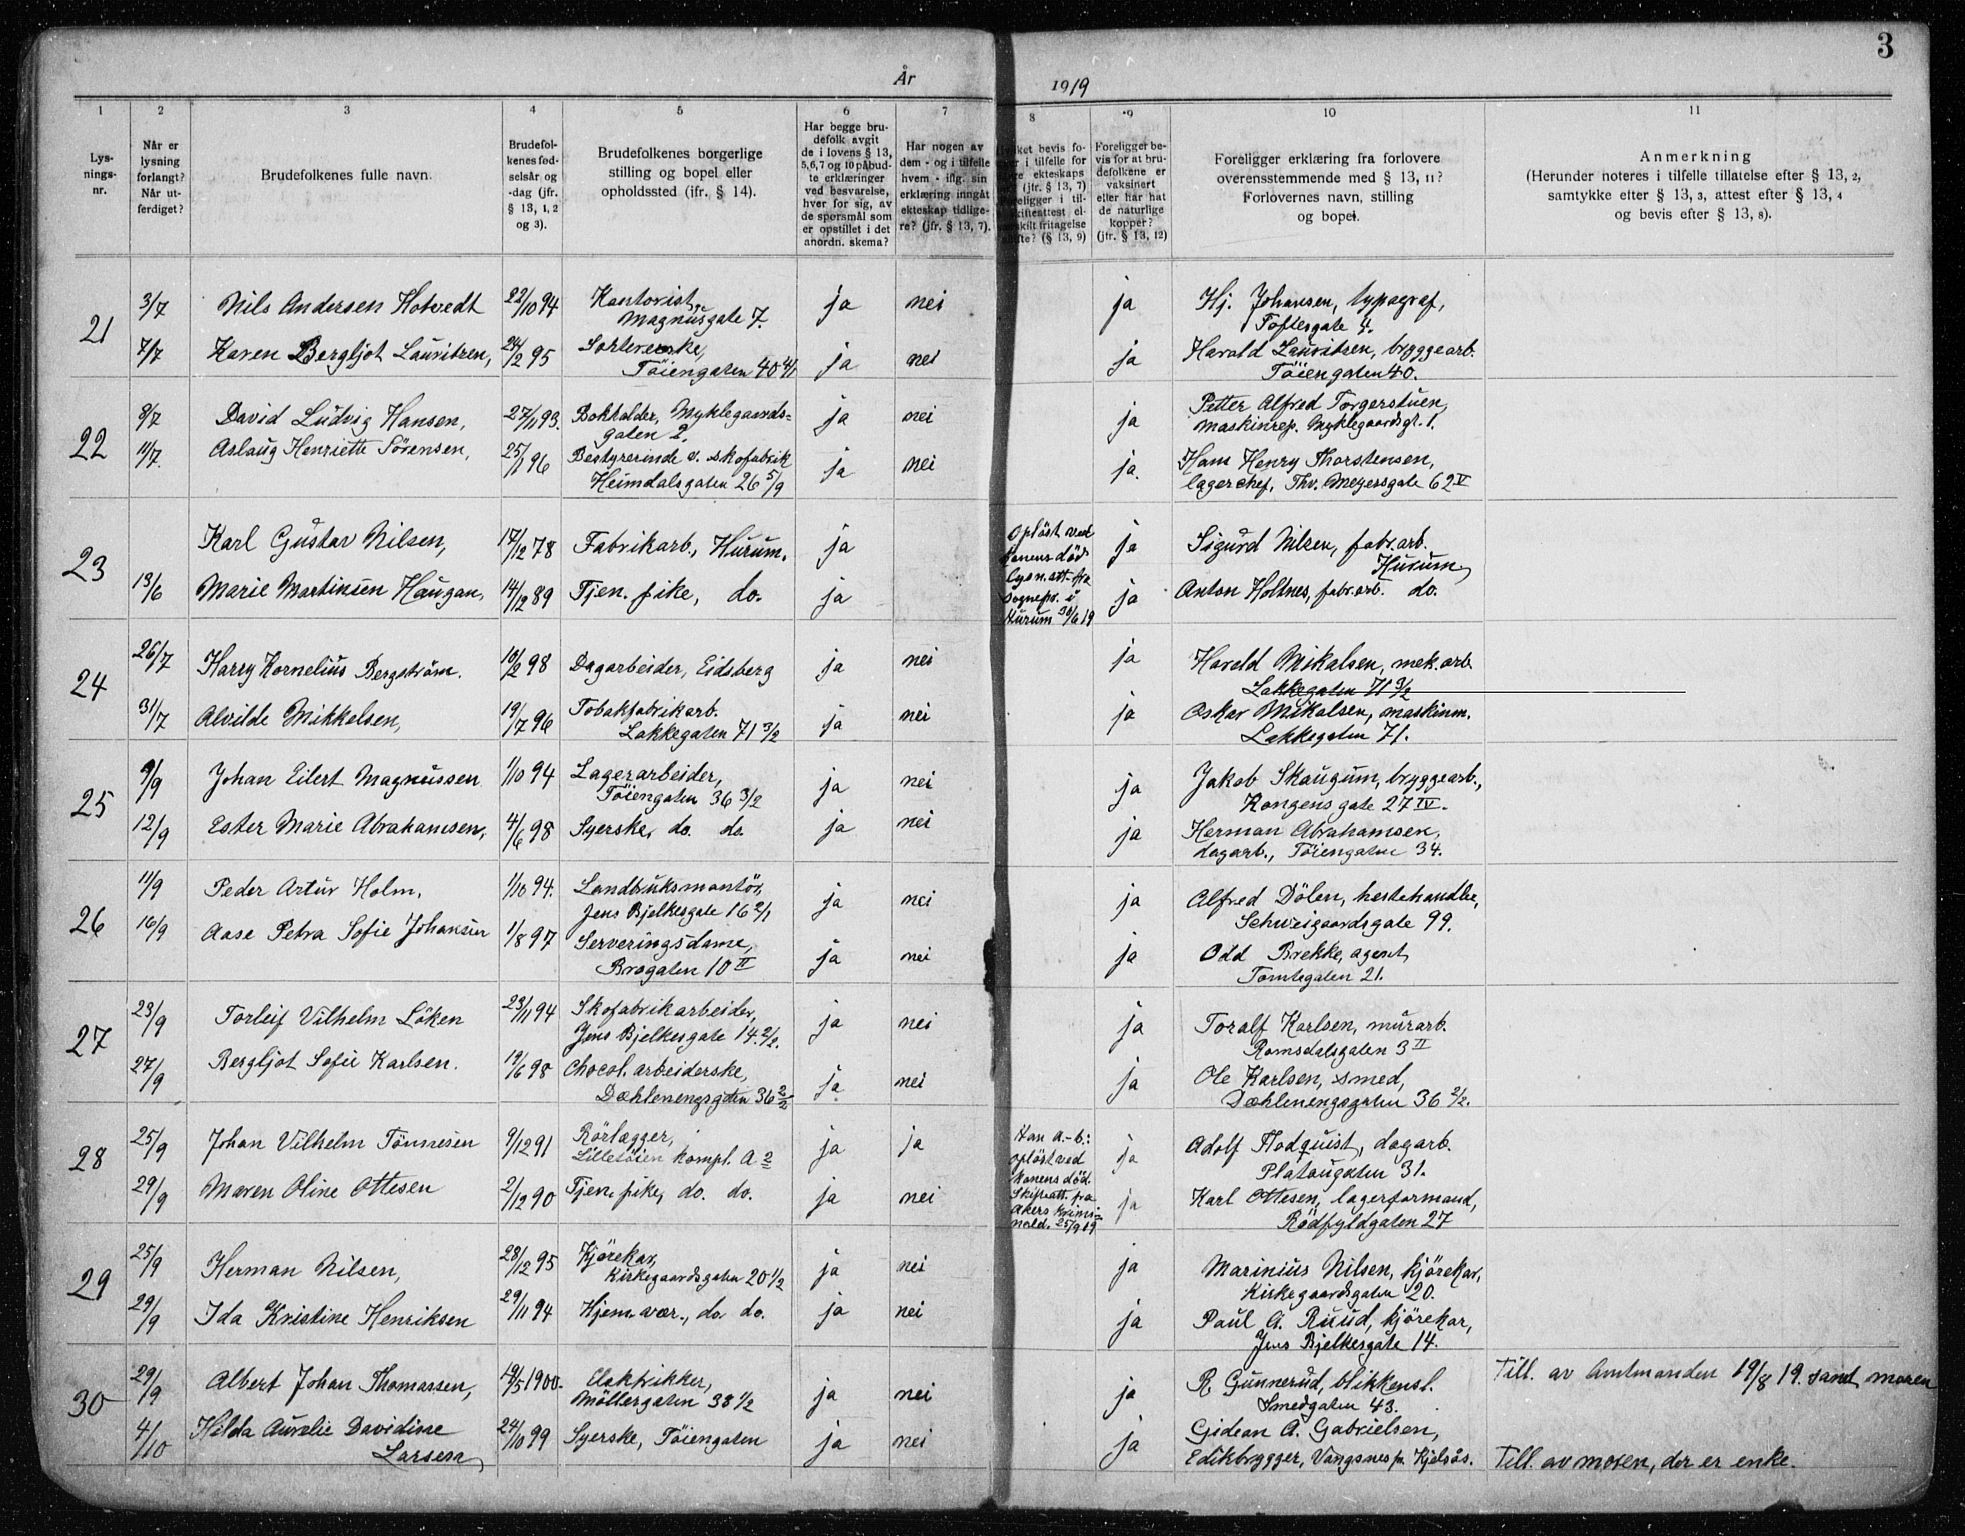 3
År 1919
1 2 3 4 5 6 7 8 9 10 11
Lys-
nings-
nr.
Når er
lysning
forlangt?
Når ut-
ferdiget?
Brudefolkenes fulle navn.
Brudefol-
kenes fød-
selsår og
-dag (jfr.
§ 13, 1, 2
og 3).
Brudefolkenes borgerlige
stilling og bopel eller
opholdssted (ifr. § 14).
Har begge bru-
defolk avgit
de i lovens § 13,
5,6,7 og 10 påbud-
te erklæringer
ved besvarelse,
hver for sig, av
de spørsmål som
er opstillet i det
anordn. skema?
Har nogen av
dem - og i tilfelle
hvem - iflg. sin
erklæring inngåt
ekteskap tidlige-
re? (jfr. § 13, 7).
bevis fo-
i tilfelle for
ekteskaps
(jfr. § 13, 7)
i til-
skifteattest el-
fritagelse
(§ 13, 9)
Foreligger be-
vis for at bru-
defolkene er
vaksinert
eller har hat
de naturlige
kopper?
(jfr. § 13, 12)
Foreligger erklæring fra forlovere
overensstemmende med § 13, 11?
Forlovernes navn, stilling
og bopel.
Anmerkning
(Herunder noteres i tilfelle tillatelse efter § 13, 2,
samtykke efter § 13, 3, attest efter § 13, 4
og bevis efter § 13, 8).
21
3/7 Nils Andersen Hotvedt 22/10 94 Kontorist,
Magnusgate 7. ja nei ja Hj. Johansen, typograf,
Toftesgate 4.
7/7 Karen Bergljot Lauritzen, 24/2 95 Sorterерske,
Töiengaten 40 4/1 ja nei ja Harald Lauritsen, bryggearb.
Töiengaten 40.
22
8/7 David Ludvig Hansen, 27/11 93. Bokholder, Myklegaards=
gaten 2. ja nei ja Petter Alfred Torgerstuen,
maskinrep. Myklegaardsgt. 1.
11/7. Aslaug Henriette Sörensen, 25/1 96 Bestyrerinde v. skofabrik
Heimdalsgaten 26 5/9 ja nei ja. Hans Henry Thorstensen,
lagerchef, Thv. Meyersgate 62 V
23
Karl Gustav Nilsen, 17/12 78 Fabrikarb., Hurum. ja Opløst ved
konens død
lysn.att. fra
sognepr. i
Hurum 30/6 19 ja Sigurd Nilsen, fabr.arb.
Hurum,
13/6 Marie Martinsen Haugan, 14/12 89 Tjen. pike, do. ja ja Anton Holtnes, fabr.arb. do.
24
26/7 Harry Kornelius Bergström. 10/2 98 Dagarbeider, Eidsberg ja nei ja Harald Mikalsen, mek. arb
Lakkegaten 71 3/2
31/7 Alvilde Mikkelsen, 19/7 96 Tobakfabrikarb.
Lakkegaten 71 3/2 ja nei ja Oskar Mikalsen, maskinm.
Lakkegaten 71.
25
9/9 Johan Eilert Magnussen 1/10 94 Lagerarbeider,
Töiengaten 36 3/2 ja nei ja Jakob Skaugum, bryggearb.,
Kongensgate 27 IV.
12/9 Ester Marie Abrahamsen, 4/6 98 Syerske, do. do ja nei ja Herman Abrahamsen,
dagarb., Töiengaten 34.
26
11/9 Peder Artur Holm. 1/10 94. Landbruksmontör,
Jens Bjelkesgate 16 2/1 ja nei ja Alfred Dölen, hestehandler,
Schweigaardsgate 99.
16/9 Aase Petra Sofie Johansen 1/8 97 Serveringsdame,
Brogaten 10 II ja nei ja Odd Brekke, agent,
Tomtegaten 21.
27
23/9 Torleif Vilhelm Löken 23/11 94 Skofabrikarbeider,
Jens Bjelkesgate 14. 2/2. ja nei ja Toralf Karlsen, murarb.
Romsdalsgaten 3 II
27/9 Bergljot Sofie Karlsen. 19/6 98 Chocol. arbeiderske,
Dæhlenengsgaten 36 2/2 ja nei ja Ole Karlsen, smed,
Dæhlenengsgaten 36 2/2.
28
25/9 Johan Vilhelm Tönnesen 9/12 91 Rörlægger,
Lilletöien kompl. A 2 ja ja Han a.-b.:
opløst ved
konens död.
Skifteatt. fra
Akers krimi=
nald. 25/9 19 ja Adolf Flodquist, dagarb.
Plataugaten 31.
29/9 Maren Oline Ottesen 2/12 90 Tjen. pike, do. do. ja nei ja Karl Ottesen, lagerformand,
Rödfyldgaten 27
29
25/9 Herman Nilsen, 28/12 95 Kjörekar,
Kirkegaardsgaten 20 1/2 ja nei ja Marinius Nilsen, kjörekar,
Kirkegaardsgaten 20.
29/9 Ida Kristine Henriksen 29/11 94 Hjem. vær., do. do. ja nei ja Paul A. Ruud, kjörekar,
Jens Bjelkesgate 14.
30
29/9 Albert Johan Thomassen, 19/5 1900. Elektrikker,
Möllergaten 38 1/2 ja nei ja R. Gunnerud, blikkensl.
Smedgaten 43. Till. av Amtmanden 19/8 19. samt moren
4/10 Hilda Aurelie Davidine
Larsen 24/10 99 Syerske, Töiengaten ja nei ja Gidean A. Gabrielsen,
Edikbrygger, Vangsnes pr. Kjelsås. Till. av moren, der er enke.